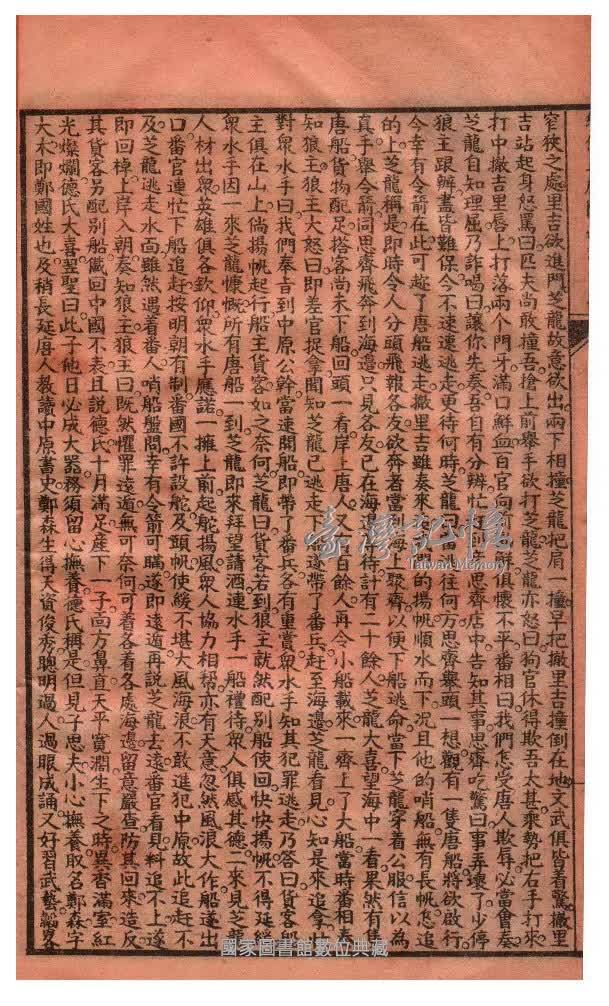 窄狹之處里吉欲進門芝龍故意欲出兩下相撞芝龍把肩一撞早把撒里吉撞倒在地文武俱皆着驚撒里
吉站起身怒罵曰匹夫尚敢撞吾搶上前舉手欲打芝龍芝龍亦怒曰狗官休得欺吾太甚乘勢把右手打來
打中撒吉里唇上打落兩个門牙滿口鮮血百官向前 解俱懷不平番相曰我們怎受唐人欺辱必當會奏
芝龍自知理屈乃詐喝曰讓你先奏吾自有分辨忙 思齊店中告知其事思齊吃驚曰事弄壞了少停
狼主跟辦盡皆難保今不速逃走更待何時芝龍曰當逃往何方思齊舉頭一想觀有一隻唐船將欲啟行
今幸有令箭在此可趂了唐船逃走撒里吉雖奏來 門的揚帆順水而下況且他的哨船無有長帆怎追
的上芝龍稱是即時令人分頭飛報各友欲奔者當到海上聚齊以便下船逃命當下芝龍穿着公服信以為
真手舉令箭同思齊飛奔到海邉只見各友已在海邉等待計有二十餘人芝龍大喜望海中一看果然有隻
唐船貨物配足搭客尚未下船回頭一看岸上唐人又有百餘人再令小船載來一齊上了大船當時番相奏
知狼主狼主大怒曰即差官捉拿聞知芝龍已逃走下船遂帶了番兵赶至海邉芝龍看見心知是來追拿
對眾水手曰我們奉旨到中原公幹當速開船即帶了番兵各有重賞眾水手知其犯罪逃走乃答曰貨客船
主俱在山上倘揚帆起行船主貨客如之奈何芝龍曰貨客若到狼主就然配別船使回快快揚帆不得延緩
眾水手因一來芝龍慷慨所有唐船一到芝龍即來拜望請酒連水手一船禮待眾人俱感其德二來見芝龍
人材出眾英雄俱各欽仰眾水手應諾一擁上前起舵揚風眾人協力相帮亦有天意忽然風浪大作船遂出
口番官連忙下船追赶按明朝有制番國不許設舵及頭帆使緩不堪大風海浪不敢進犯中原故此追赶不
及芝龍逃走水面雖然遇着番人哨船盤問幸有令箭可瞞遂即遠遁再説芝龍去遠番官看見料追不上遂
即回棹上岸入朝奏知狼主狼主曰既然懼罪遠遁無可奈何可着各看各處海邉留意嚴查防其回來造反
其貨客另配別船儎回中國不表且説德氏十月滿足產下一子面方鼻直天平寬濶生下之時異香滿室紅
光燦爛德氏大喜翌聖曰此子他日必成大器務須留心撫養德氏稱是但見子思夫小心撫養取名鄭森字
大木即鄭國姓也及稍長延唐人教讀中原書史鄭森生得天資俊秀聰明過人過眼成誦又好習武藝